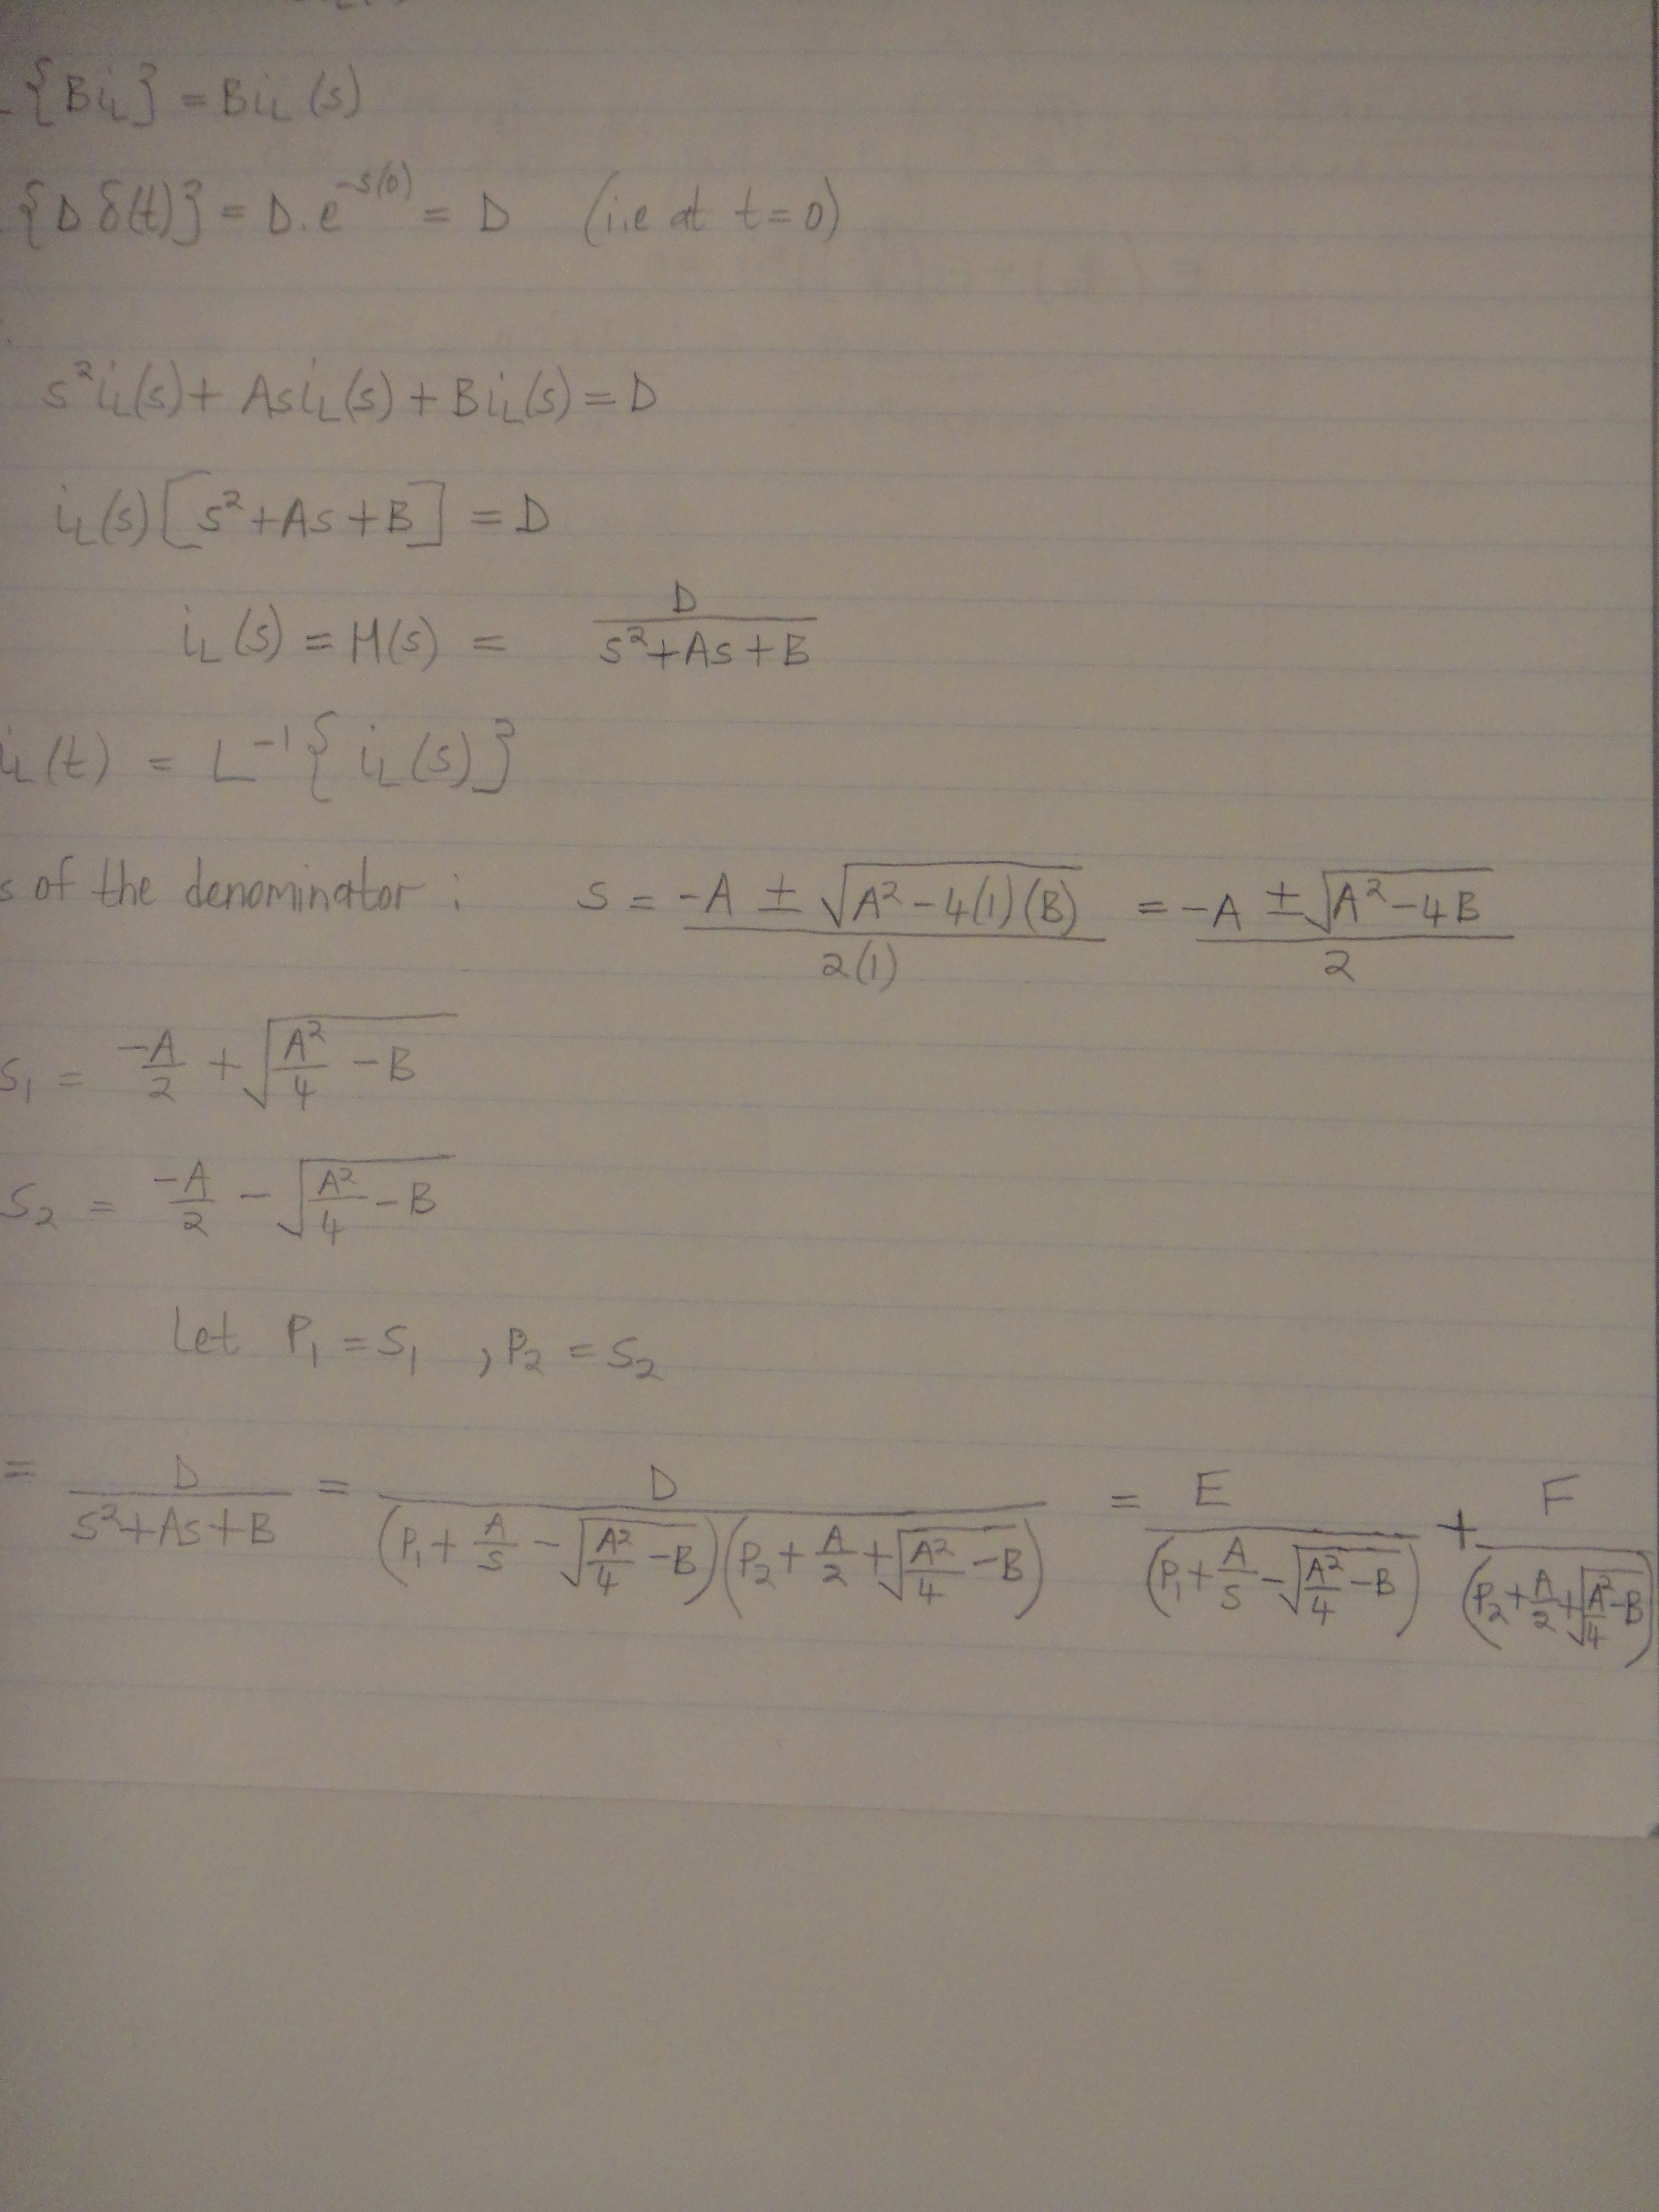 {BiL} = BiL(s)
{Dδ(t)} = D.e^-s(0) = D (i.e at t=0)
s²iL(s) + AsiL(s) + BiL(s) = D
iL(s)[s²+As+B] = D
iL(s) = H(s) = D/(s²+As+B)
iL(t) = L⁻¹{iL(s)}
s of the denominator : s = (-A ± √(A²-4(1)(B)))/2(1) = (-A ± √(A²-4B))/2
S₁ = -A/2 + √(A²/4 - B)
S₂ = -A/2 - √(A²/4 - B)
Let P₁ = S₁ , P₂ = S₂
= D/(s²+As+B) = D/((P₁ + A/s - √(A²/4 - B))(P₂ + A/2 + √(A²/4 - B))) = E/(P₁ + A/s - √(A²/4 - B)) + F/(P₂ + A/2 + √(A²/4 - B))